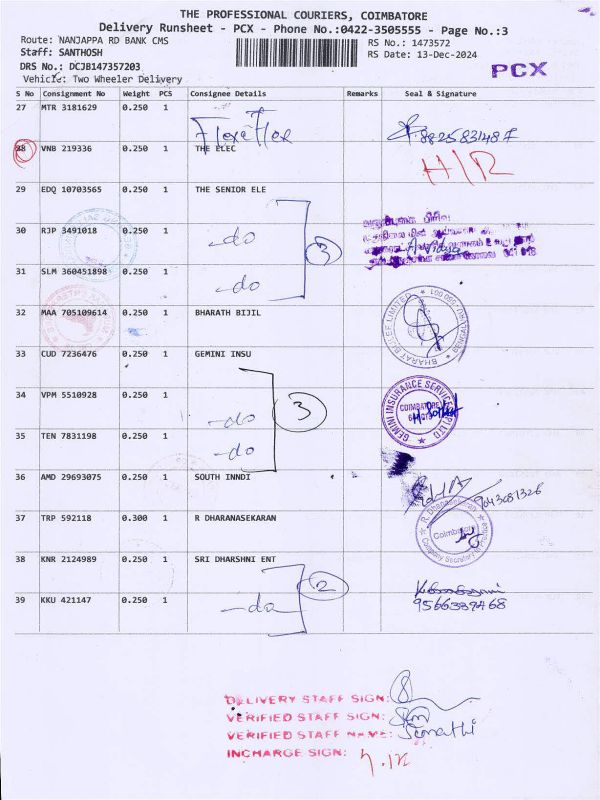 THE PROFESSIONAL COURIERS, COIMBATORE
Delivery Runsheet - PCX - Phone No.:0422-3505555 - Page No.:3
Route: NANJAPPA RD BANK CMS
RS No.: 1473572
Staff: SANTHOSH
RS Date: 13-Dec-2024
DRS No.: DCJB147357203
PCX
Vehicle: Two Wheeler Delivery
S No Consignment No Weight PCS Consignee Details Remarks Seal & Signature
27 MTR 3181629 0.250 1 8825831487
28 VNB 219336 0.250 1 THE ELEC
29 EDQ 10703565 0.250 1 THE SENIOR ELE
30 RJP 3491018 0.250 1 -do 3
31 SLM 360451898 0.250 1 -do
32 MAA 705109614 0.250 1 BHARATH BIJIL
33 CUD 7236476 0.250 1 GEMINI INSU
34 VPM 5510928 0.250 1 -do 3 GEMINI INSURANCE SERVICE COIMBATORE
35 TEN 7831198 0.250 1 -do
36 AMD 29693075 0.250 1 SOUTH INNDI
37 TRP 592118 0.300 1 R DHARANASEKARAN Coimbatore
38 KNR 2124989 0.250 1 SRI DHARSHNI ENT
39 KKU 421147 0.250 1 -do 2
DELIVERY STAFF SIGN:
VERIFIED STAFF SIGN:
VERIFIED STAFF NAME: Sumathi
INCHARGE SIGN: